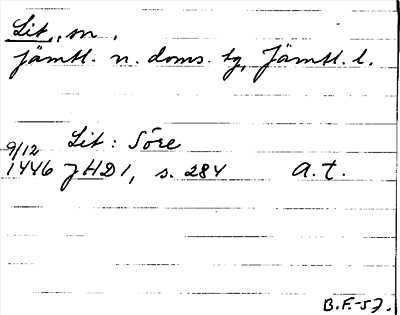 Lit, sn.
Jämtl. n. doms. tg, Jämtl. l.
Lit: Söre
9/12
1446 JHD 1, s. 284 A. t.
B.F.-57.